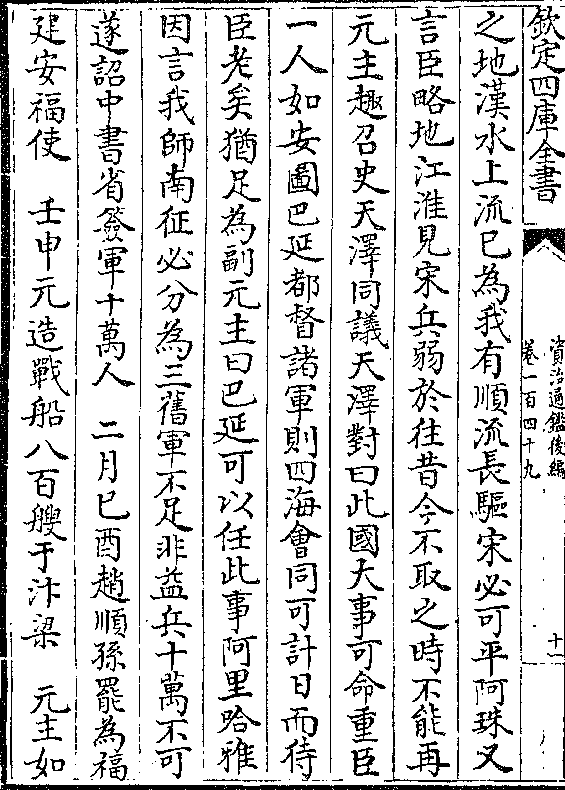 欽定四庫全書
資治通鑑後編
卷一百四十九
十
之地漢水上流已為我有順流長驅宋必可平阿珠又
言臣略地江淮見宋兵弱於往昔今不取之時不能再
元主趣召史天澤同議天澤對曰此國大事可命重臣
一人如安圖巴延都督諸軍則四海會同可計日而待
臣老矣猶足為副元主曰巴延可以任此事阿里哈雅
因言我師南征必分為三舊軍不足非益兵十萬不可
遂詔中書省簽軍十萬人 二月己酉趙順孫罷為福
建安福使 壬申元造戰船八百艘于汴梁 元主如